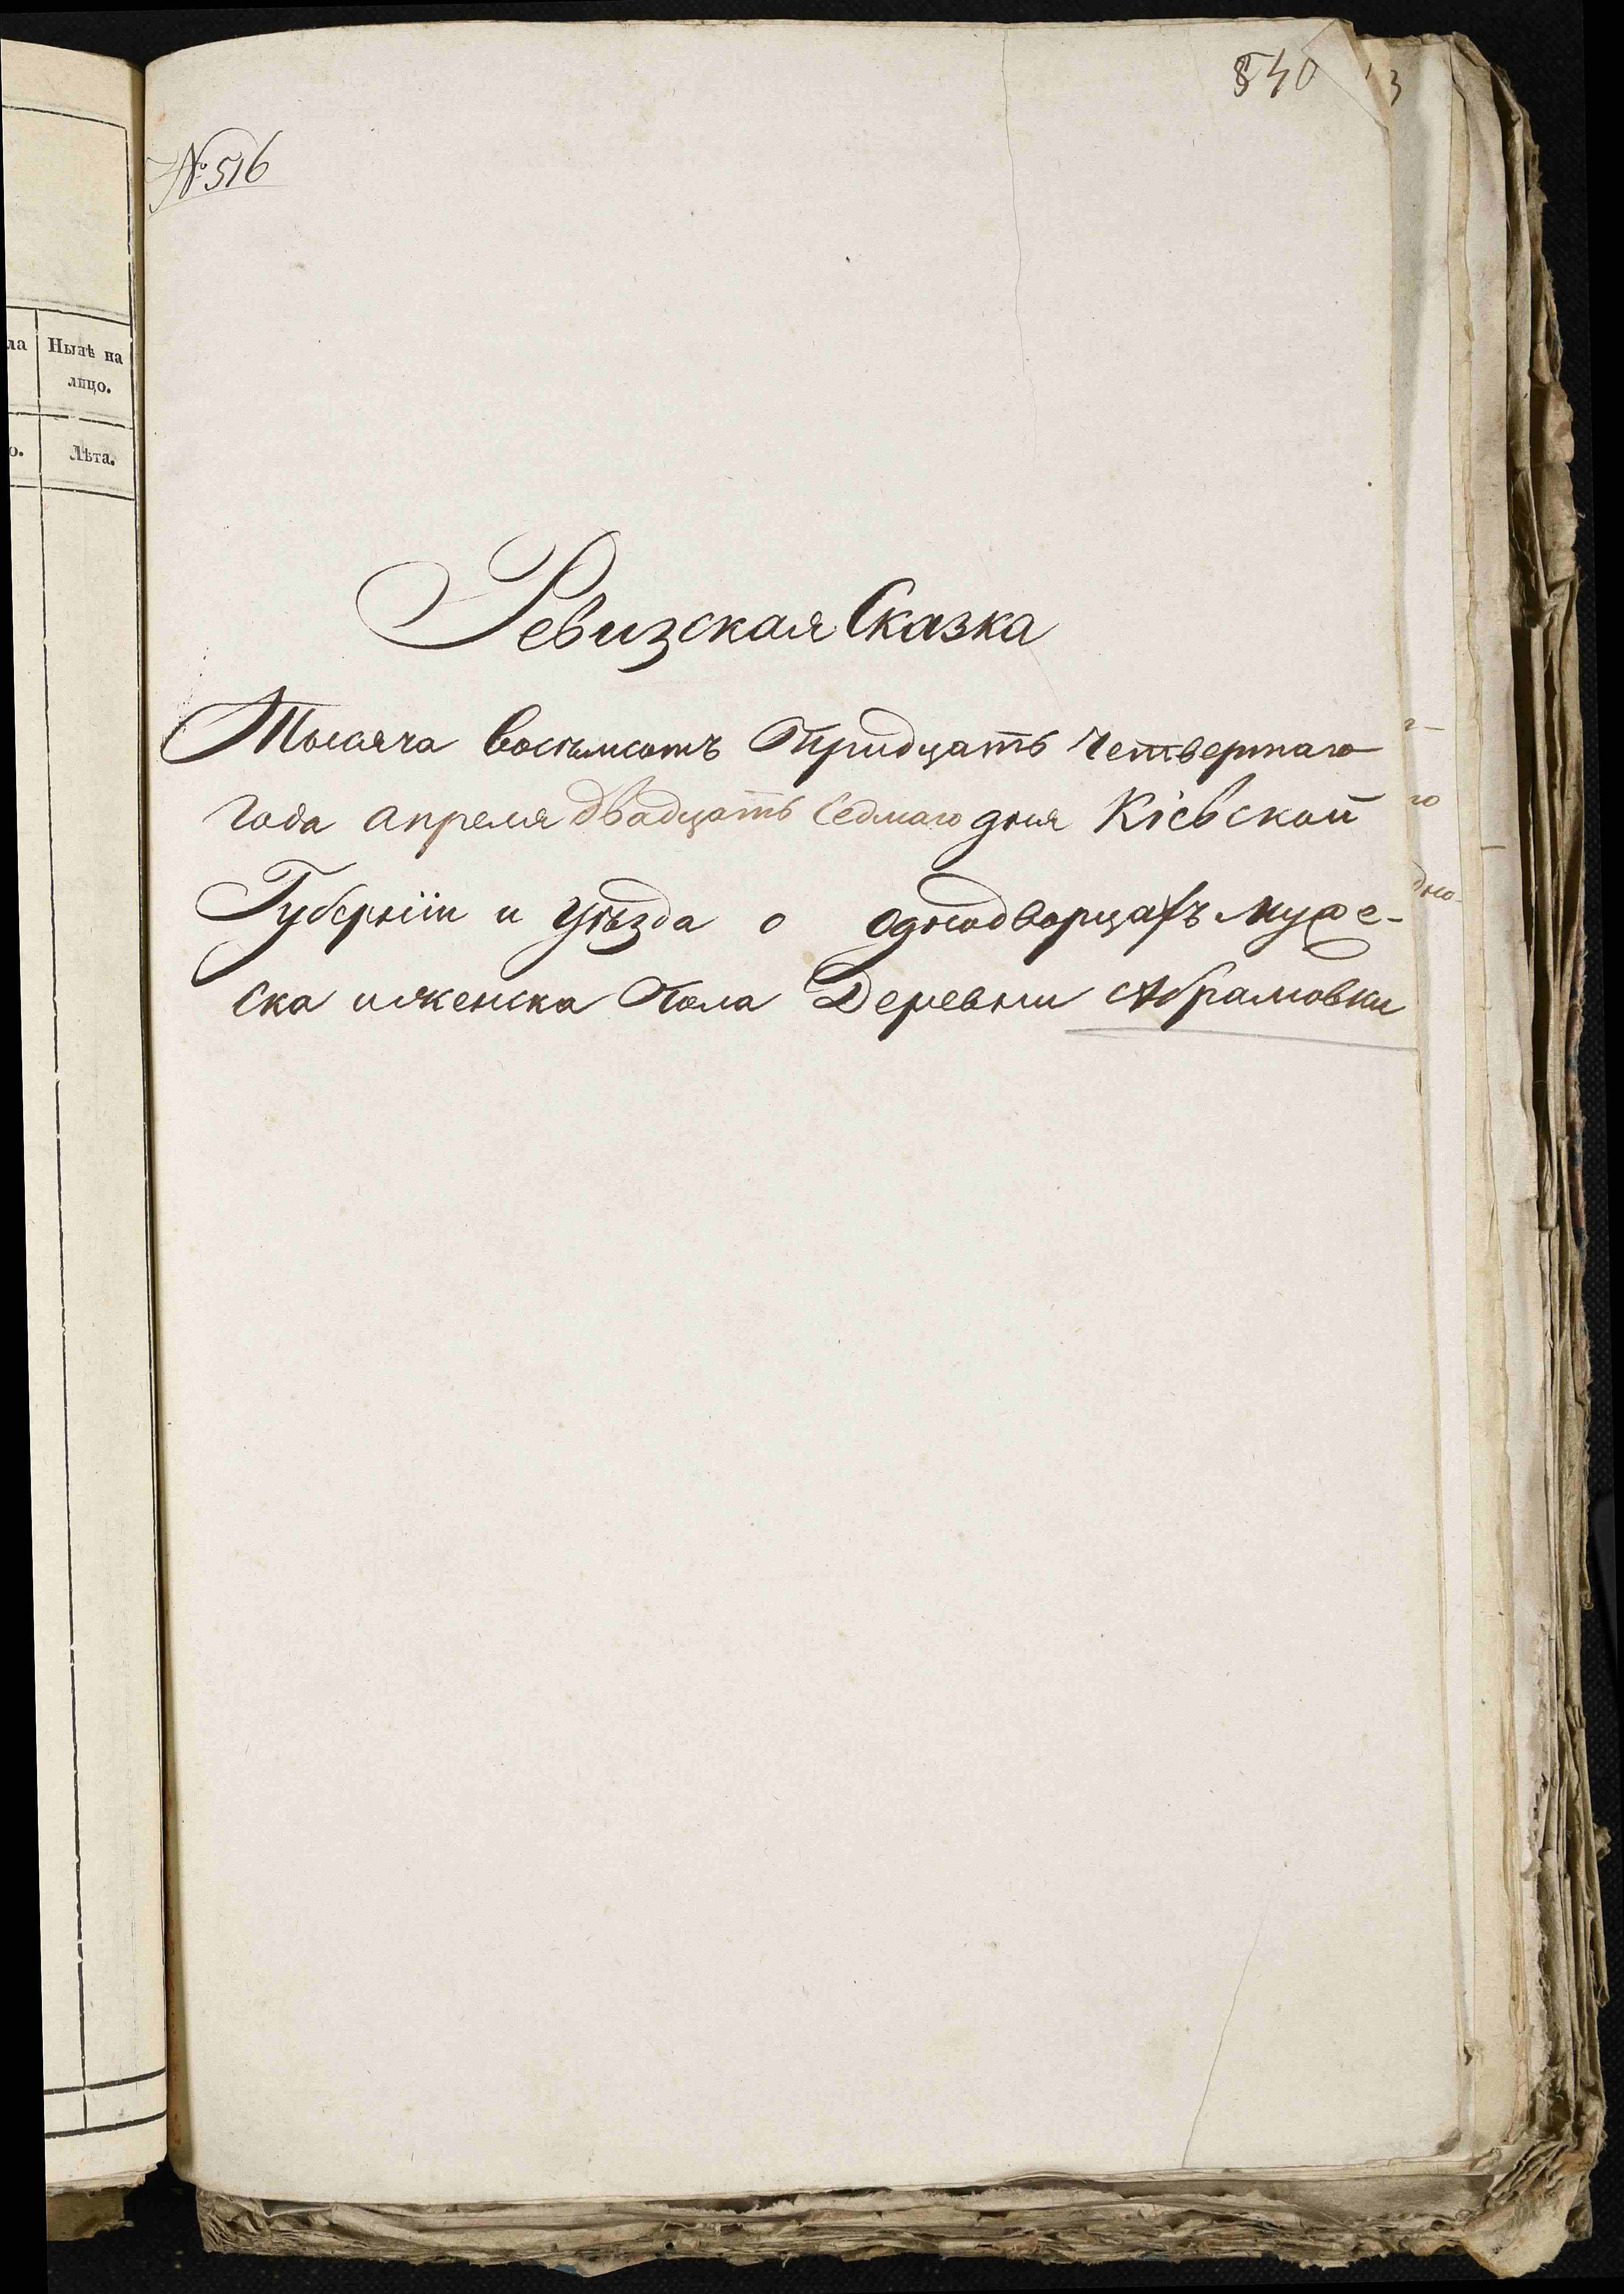 540
3
№ 516
ла
Нынѣ на
лицо.
о.
Лѣта.
Ревизская Сказка
Тысяча восѣмсотъ Тридцать Четвертаго
Года апреля двадцать Седмаго дня Кіевской
Губерніи и уѣзда о однодворцахъ муже-
ска иженска Пола Деревни Абрамовки
го
дно-